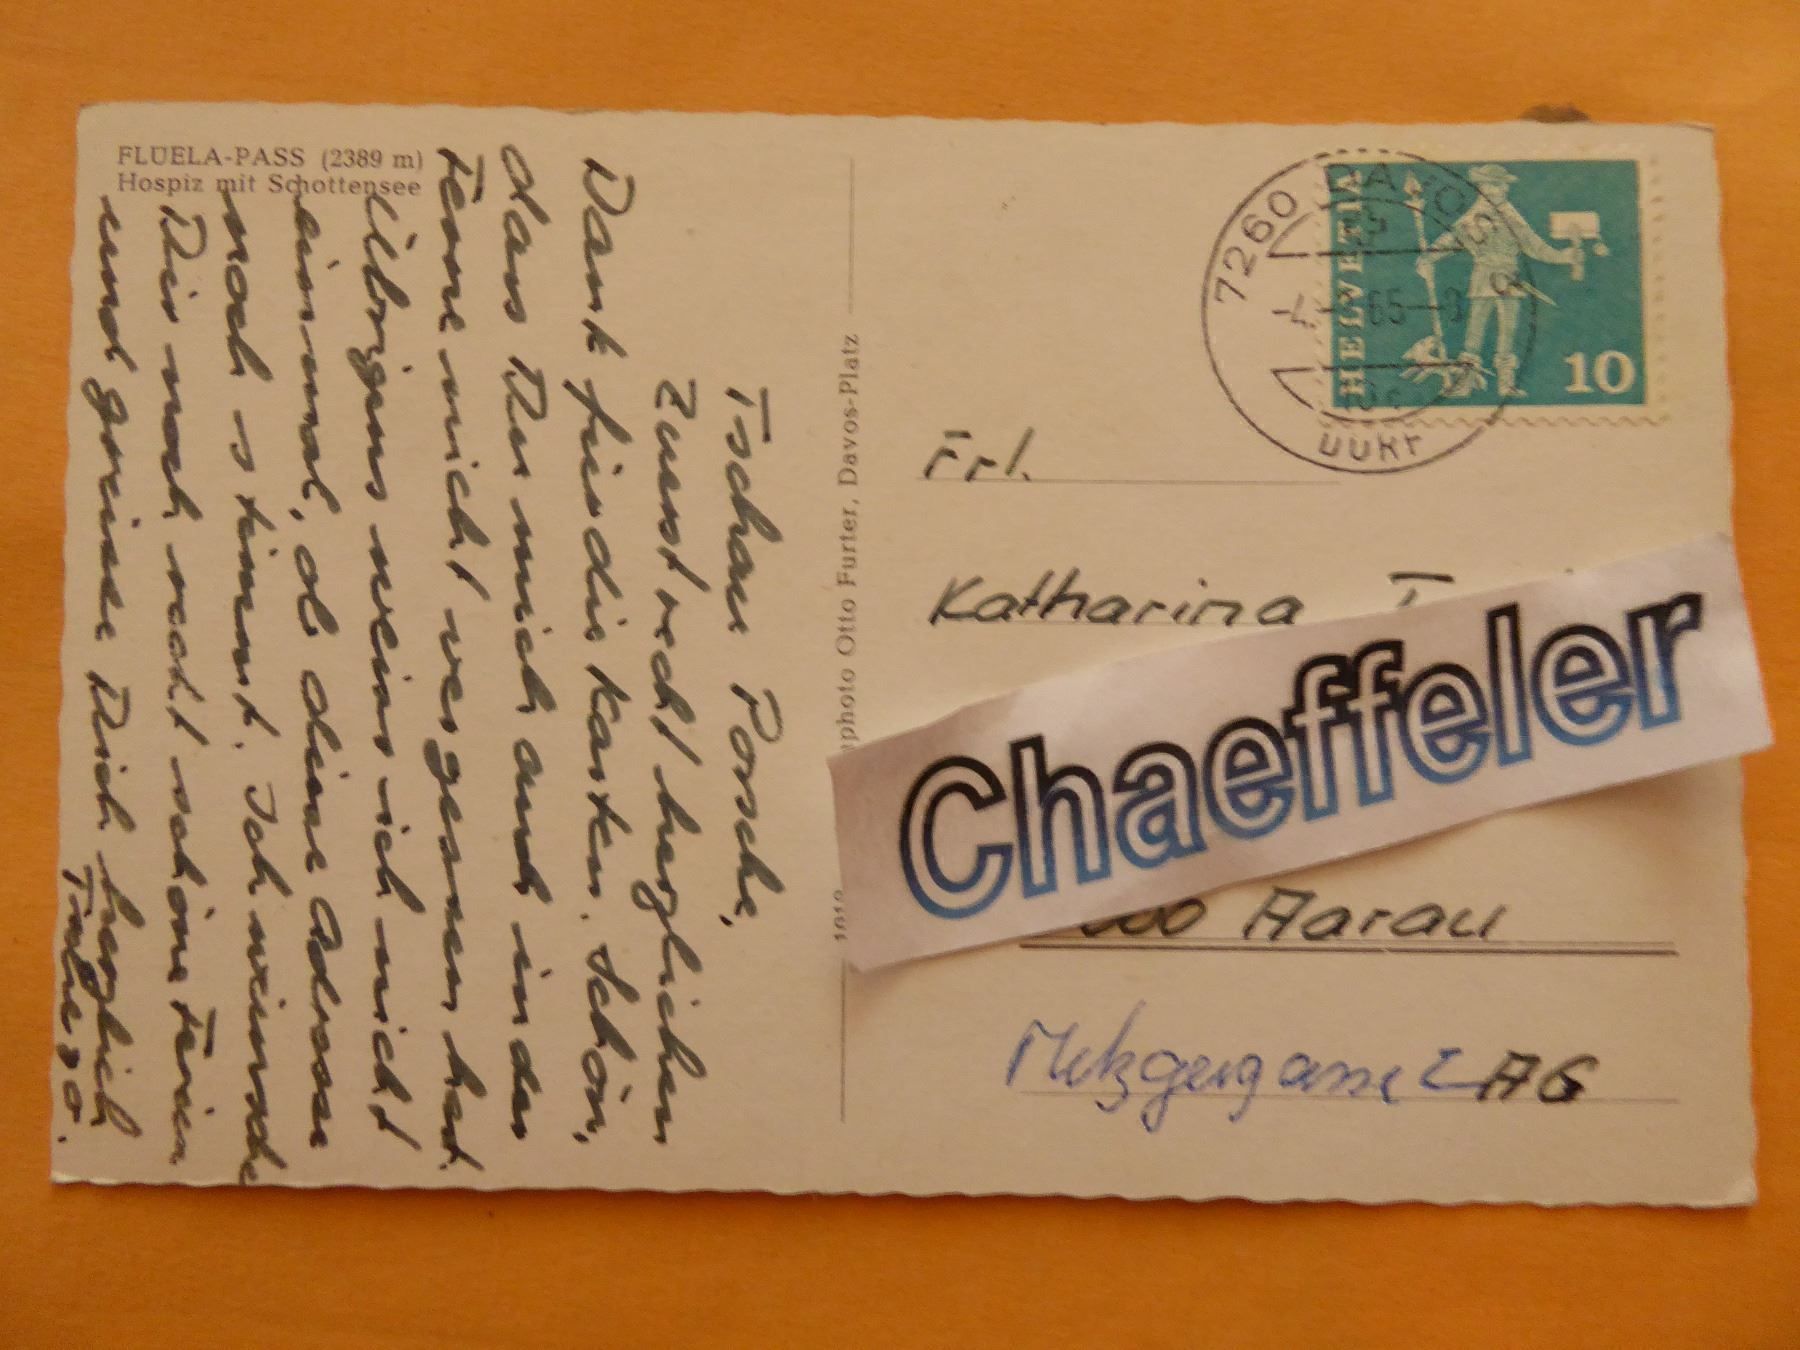 FLÜELA-PASS (2389 m)
Hospiz mit Schottensee
Tschau Porsche,
Zuerst recht herzlichen
Dank für die Karten. Schön,
dass Du mich auch in der
Ferne nicht vergessen hast.
Übrigens weiss ich nicht
einmal, ob diese Adresse
noch stimmt. Ich wünsche
Dir noch recht schöne Ferien
und grüsse Dich herzlich
photo Otto Furter, Davos-Platz
7260 DAVOS
65
HELVETIA
10
Frl.
Katharina
Chaeffeler
Aarau
Metzgergasse 2 AG